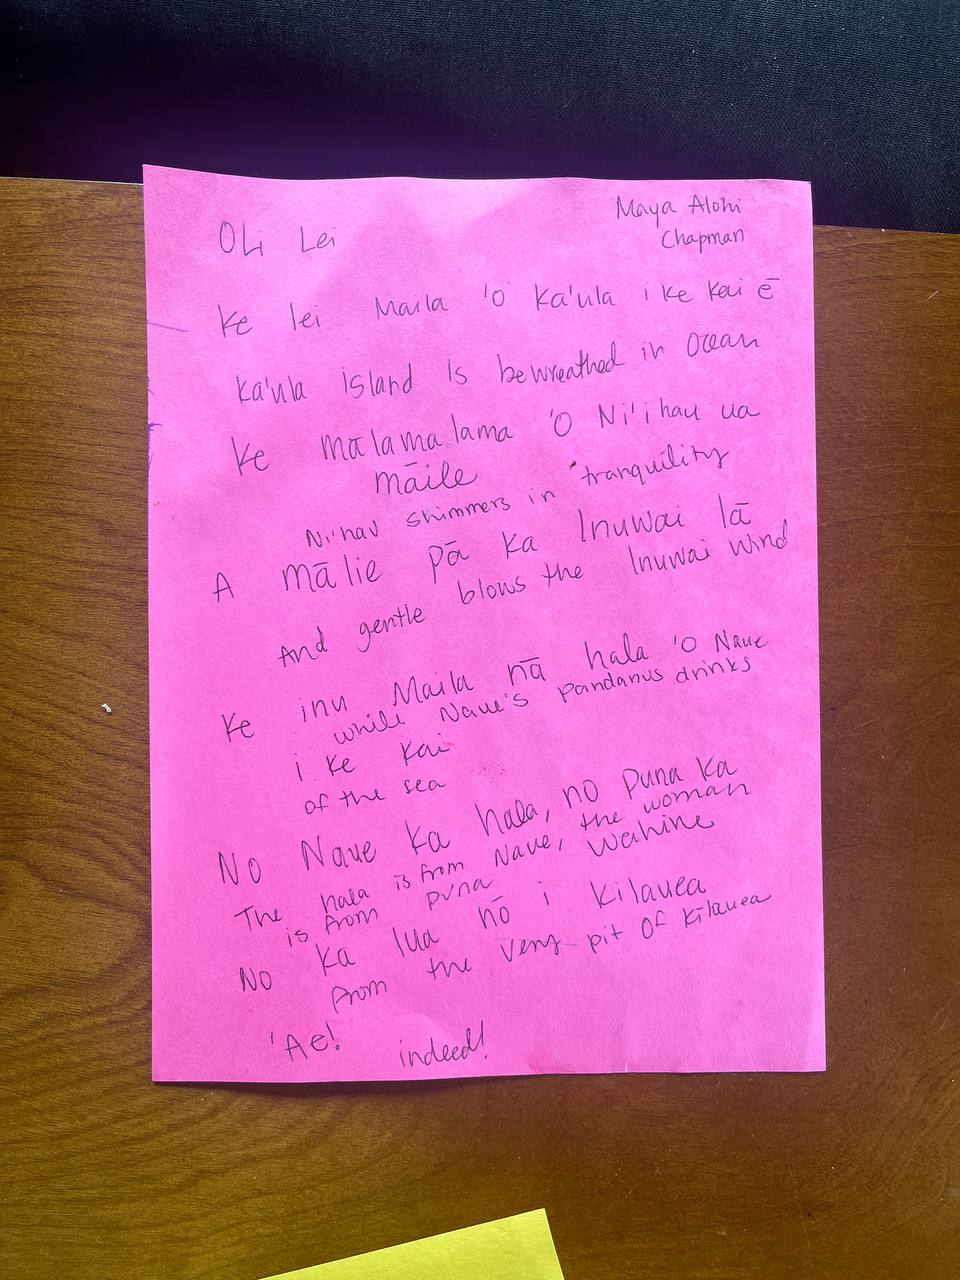 Oli Lei
Maya Alohi
Chapman
Ke lei Maila 'o Ka'ula i ke kai ē
Ka'ula island is bewreathed in Ocean
Ke mālamalama 'O Ni'ihau ua
māile
Ni'ihau shimmers in tranquility
A mālie pā ka Inuwai lā
And gentle blows the Inuwai wind
Ke inu Maila nā hala 'o Naue
while Naue's pandanus drinks
i ke kai
of the sea
No Naue ka hala, no Puna ka
The hala is from Naue, the woman
wahine
is from puna
No ka lua nō i Kilauea
from the very pit of Kilauea
'Ae!
indeed!